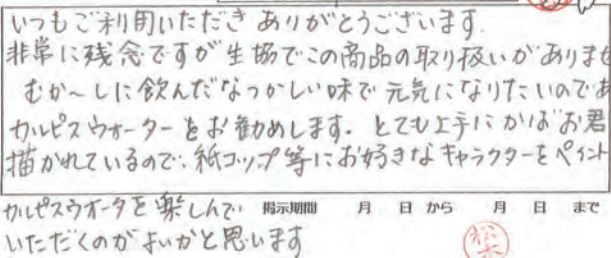 いつもご利用いただき ありがとうございます.
非常に残念ですが生協でこの商品の取り扱いがありませ
むか〜しに飲んだなつかしい味で元気になりたいのであ
カルピスウォーターをお勧めします. とても上手にかばお君
描かれているので、紙コップ等にお好きなキャラクターをペイント
カルピスウォータを楽しんで 掲示期間 月 日 から 月 日 まで
いただくのがよいかと思います
松本